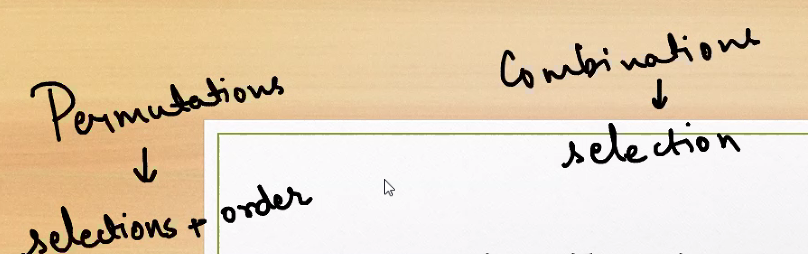 Permutations
↓
selections + order
Combinations
↓
selection